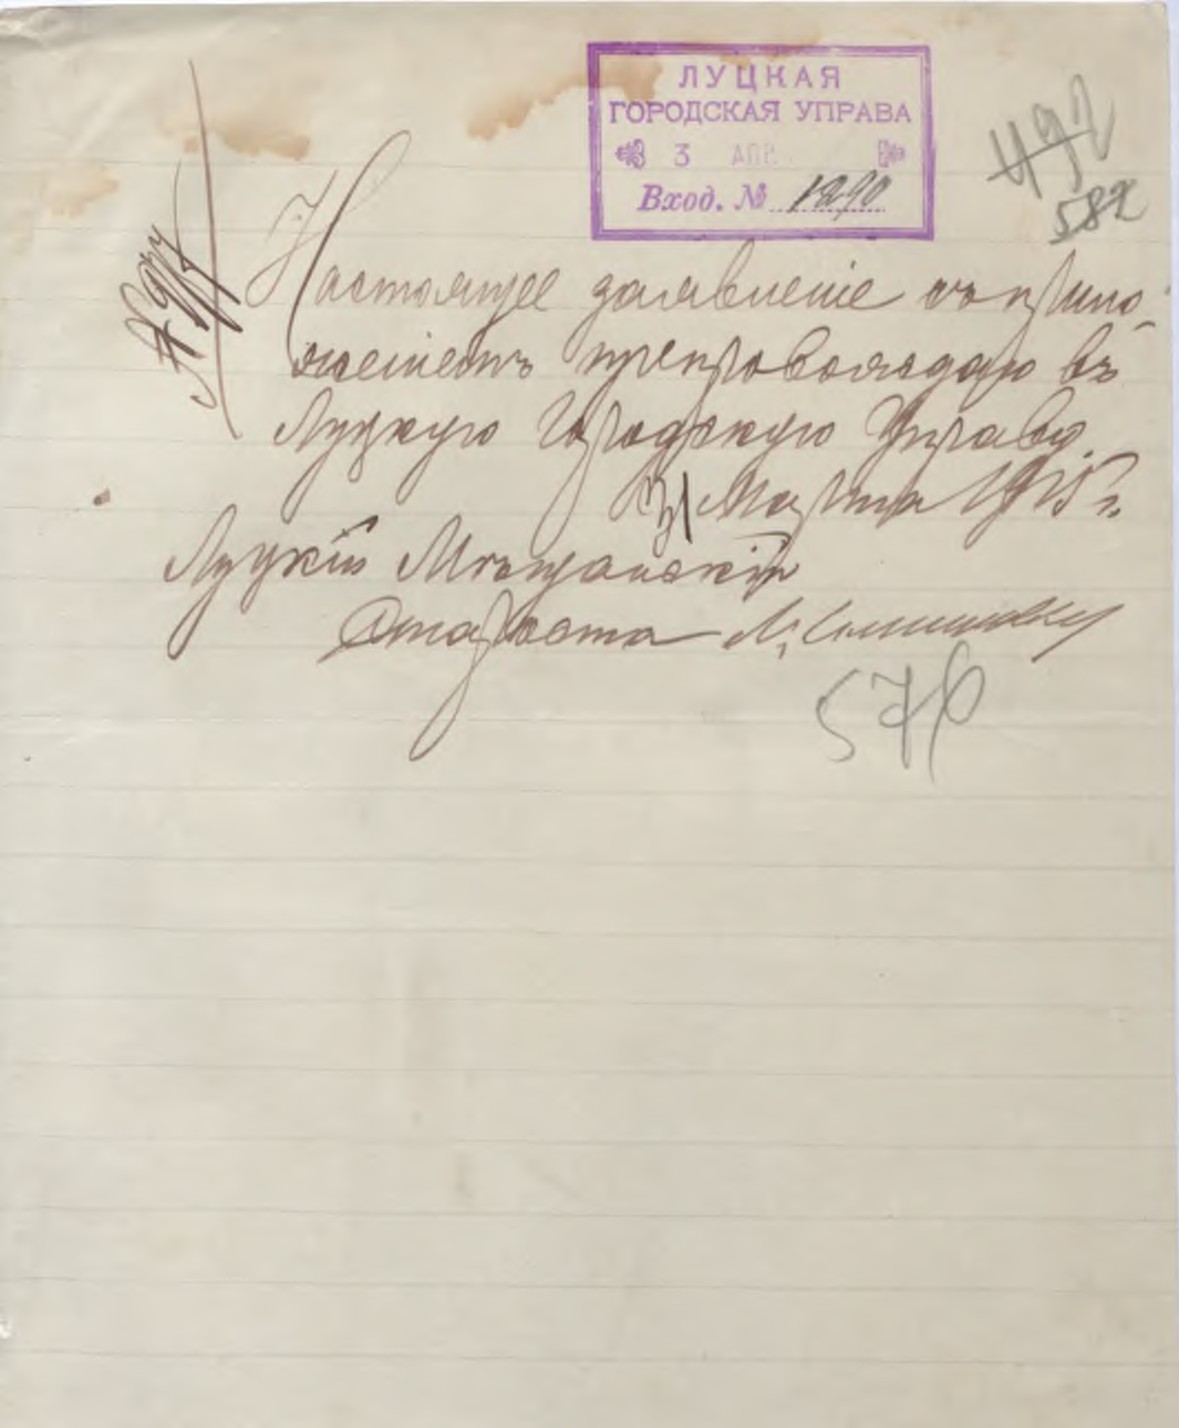 ЛУЦКАЯ
ГОРОДСКАЯ УПРАВА
3 АПР
Вход. № 1290
492
582
Настоящее заявленіе съ прило-
женіемъ препровождаю въ
Луцкую Городскую Управу.
31 Марта 1915 г.
Луцкій Мѣщанскій
Староста
576